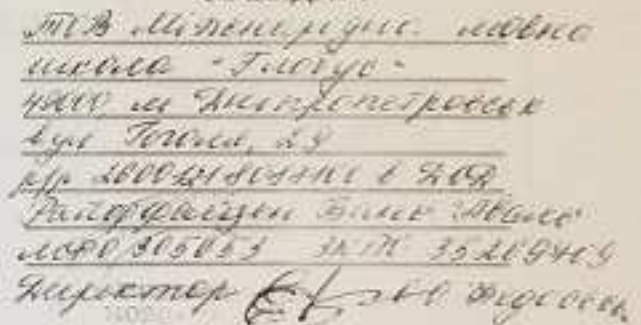 ТОВ Міжнародна мовна
школа "Глобус"
49000, м Дніпропетровськ
вул Гоголя, 29
р/р в ДОД
Райффайзен Банк Аваль
МФО 305653 ЗКПО 35209409
Директор